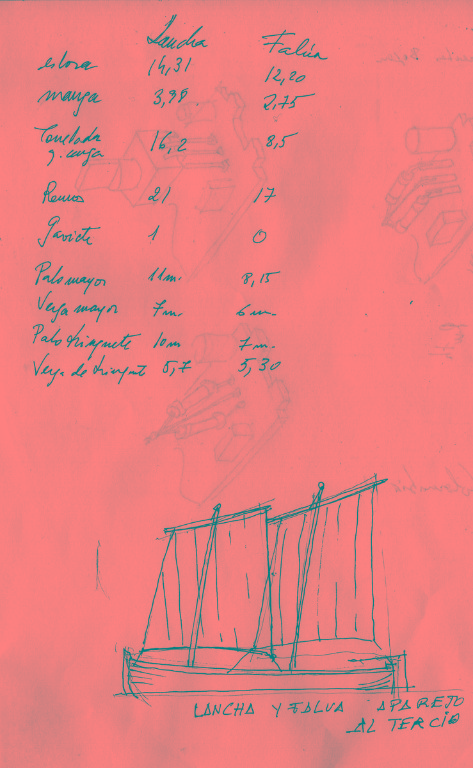 Lancha Falúa
eslora 14,31 12,20
manga 3,98 2,75
Tonelada 16,2 8,5
q. carga
Remos 21 17
Gaviete 1 0
Palo mayor 11 m. 8,15
Verga mayor 7 m. 6 m.
Palo trinquete 10 m 7 m.
Verga de trinquete 5,7 5,30
LANCHA Y FALUA APAREJO
AL TERCIO